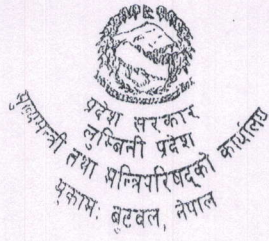 प्रदेश सरकार
लुम्बिनी प्रदेश
मुख्यमन्त्री तथा मन्त्रिपरिषद्को कार्यालय
मुकाम: बुटवल, नेपाल